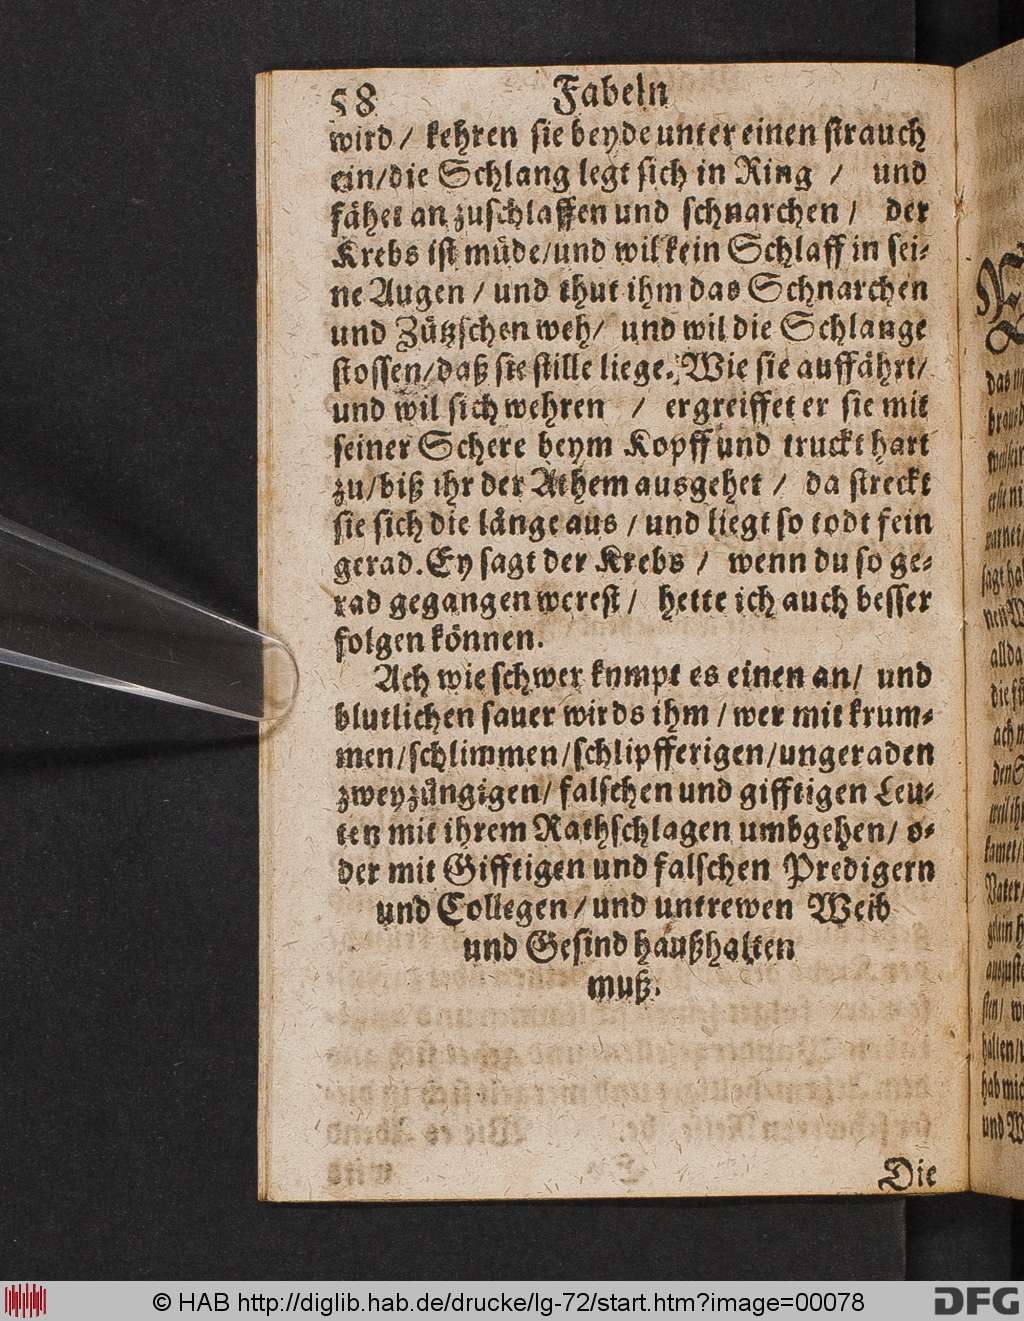 58 Fabeln
wird/ kehren sie beyde unter einen strauch
ein/die Schlang legt sich in Ring / und
fähet an zuschlaffen und schnarchen / der
Krebs ist müde/und wil kein Schlaff in sei-
ne Augen / und thut ihm das Schnarchen
und Zützschen weh/ und wil die Schlange
stossen/daß sie stille liege. Wie sie auffährt/
und wil sich wehren / ergreiffet er sie mit
seiner Schere beym Kopff und truckt hart
zu/biß ihr der Athem ausgehet / da streckt
sie sich die länge aus / und liegt so todt fein
gerad. Ey sagt der Krebs / wenn du so ge-
rad gegangen werest / hette ich auch besser
folgen können.
Ach wie schwer kompt es einen an/ und
blutlichen sauer wirds ihm / wer mit krum-
men/schlimmen/schlipfferigen/ungeraden
zweyzüngigen/ falschen und gifftigen Leu-
ten mit ihrem Rathschlagen umbgehen/ o-
der mit Gifftigen und falschen Predigern
und Collegen / und untrewen Weib
und Gesind haußhalten
muß.
Die
© HAB http://diglib.hab.de/drucke/lg-72/start.htm?image=00078
DFG